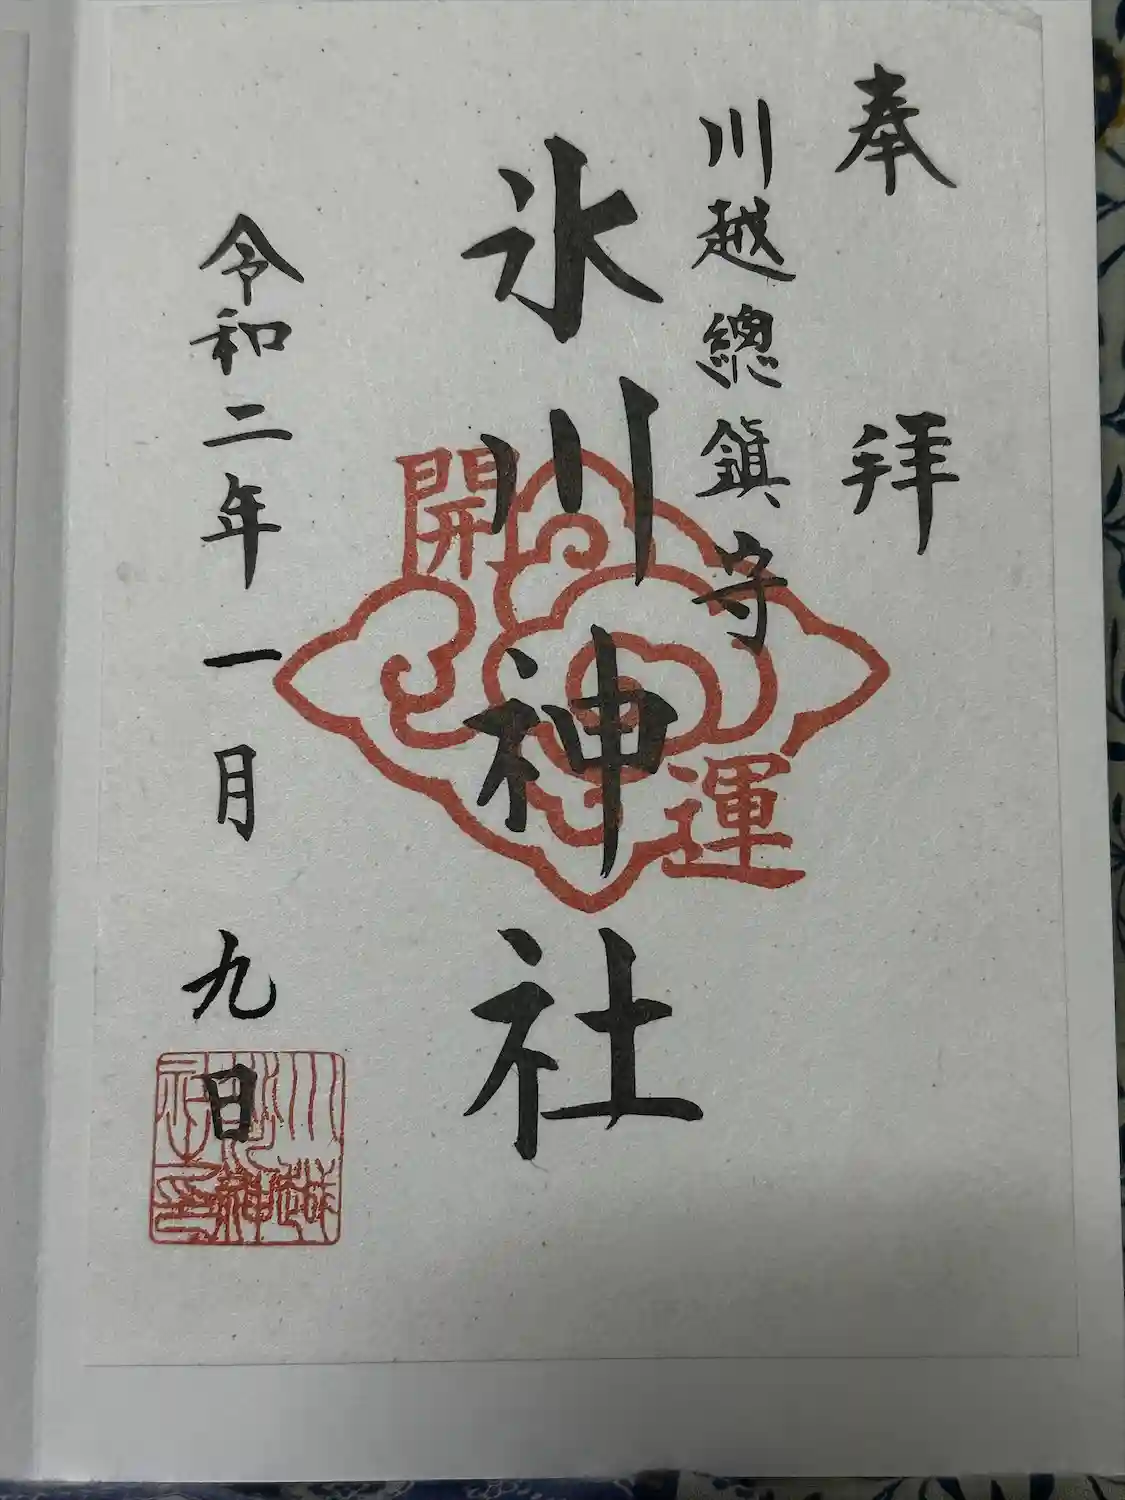 奉拜
川越總鎮守
氷川神社
開運
令和二年一月九日
川越氷川神社印